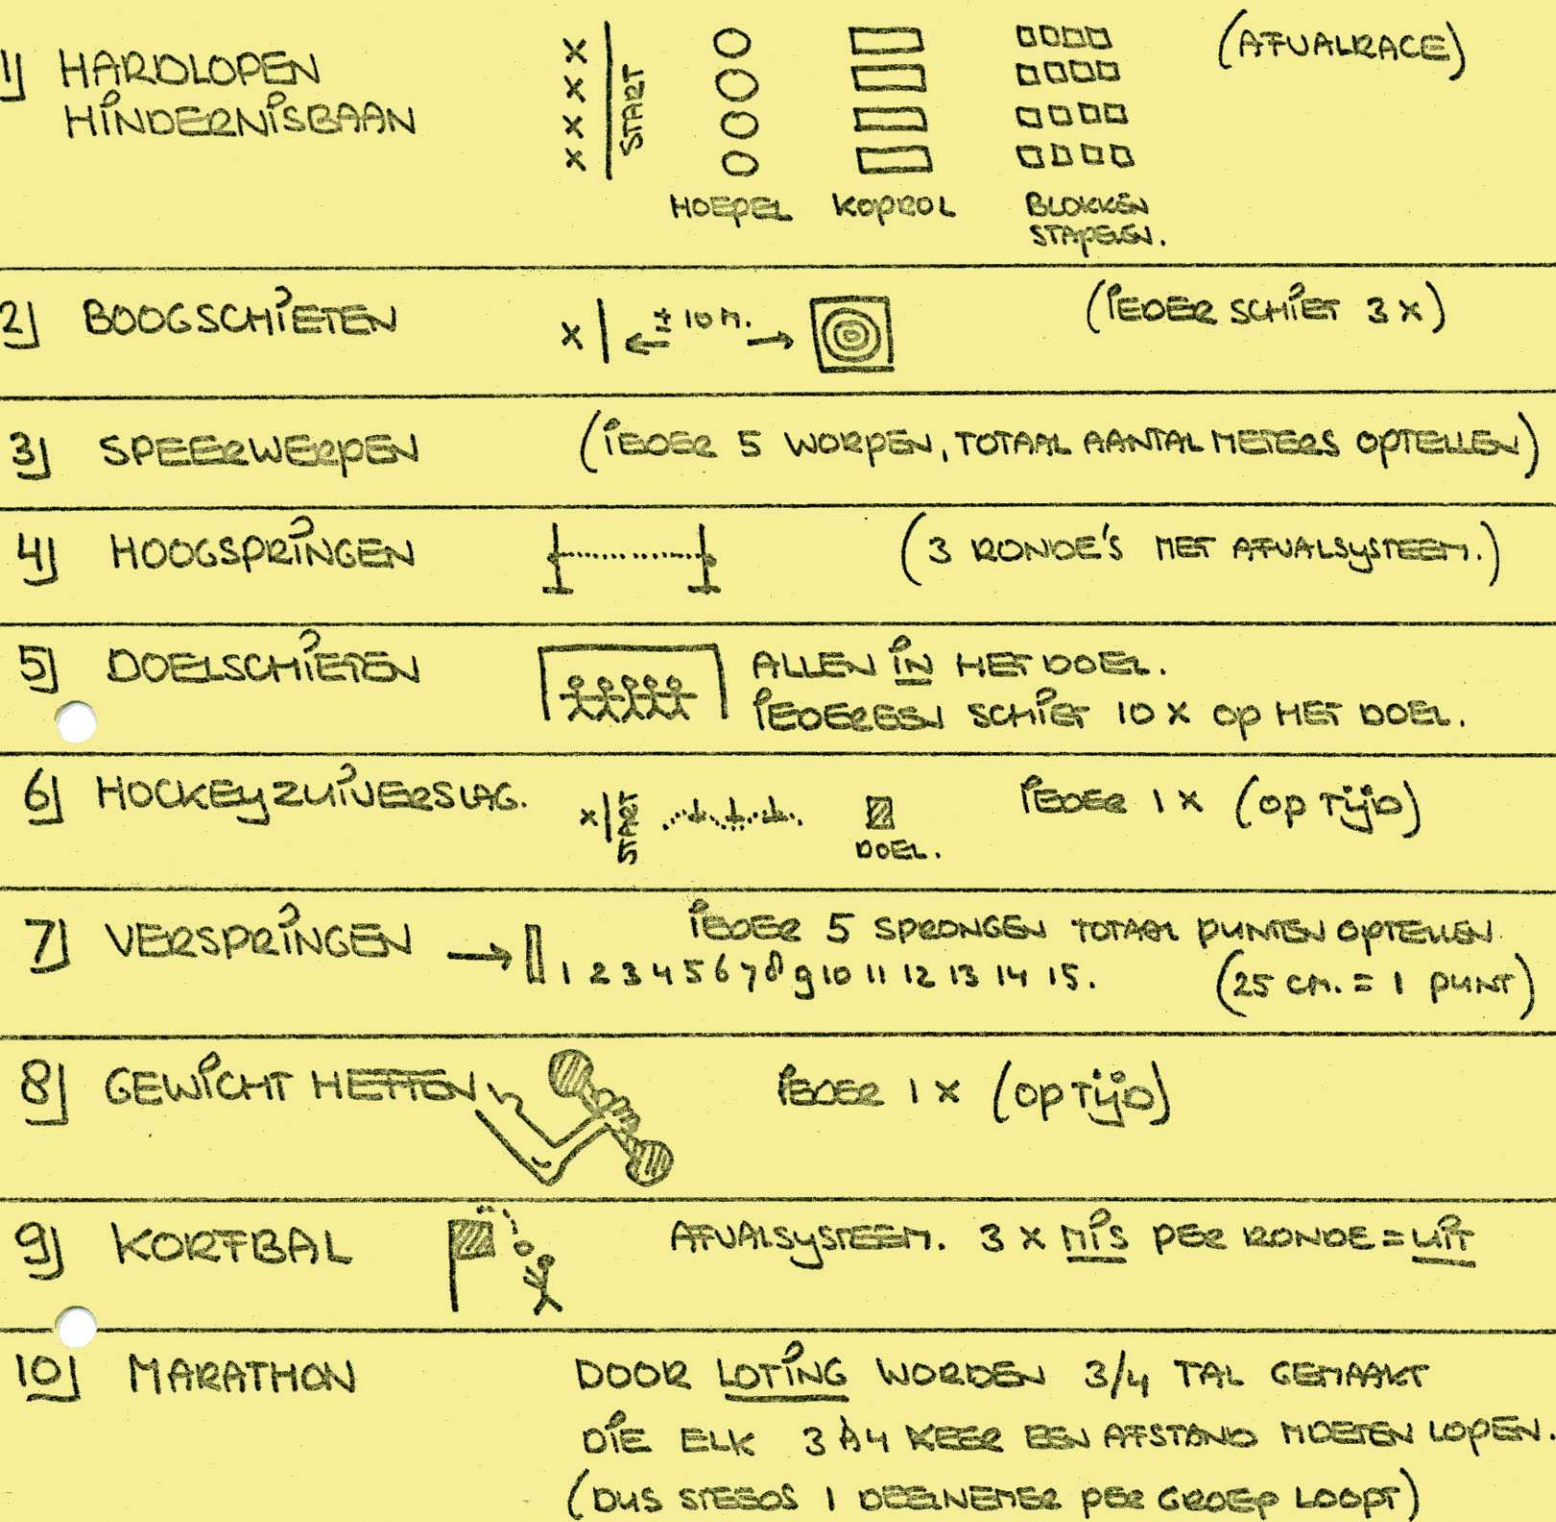 1) HARDLOPEN
HINDERNISBAAN
x x x x
START
HOEPEL KOPROL BLOKKEN
STAPELEN.
(AFVALRACE)
2) BOOGSCHIETEN x ← ± 10 M. → (IEDER SCHIET 3 X)
3) SPEERWERPEN (IEDER 5 WORPEN, TOTAAL AANTAL METERS OPTELLEN)
4) HOOGSPRINGEN (3 RONDE'S MET AFVALSYSTEEM.)
5) DOELSCHIETEN ALLEN IN HET DOEL.
IEDEREEN SCHIET 10 X OP HET DOEL.
6) HOCKEYZUIVERSLAG. x START DOEL. IEDER 1 X (OP TIJD)
7) VERSPRINGEN → IEDER 5 SPRONGEN TOTAAL PUNTEN OPTELLEN
1 2 3 4 5 6 7 8 9 10 11 12 13 14 15. (25 CM. = 1 PUNT)
8) GEWICHT HEFFEN IEDER 1 X (OP TIJD)
9) KORFBAL AFVALSYSTEEM. 3 X MIS PER RONDE = UIT
10) MARATHON DOOR LOTING WORDEN 3/4 TAL GEMAAKT
DIE ELK 3 À 4 KEER EEN AFSTAND MOETEN LOPEN.
(DUS STEEDS 1 DEELNEMER PER GROEP LOOPT)